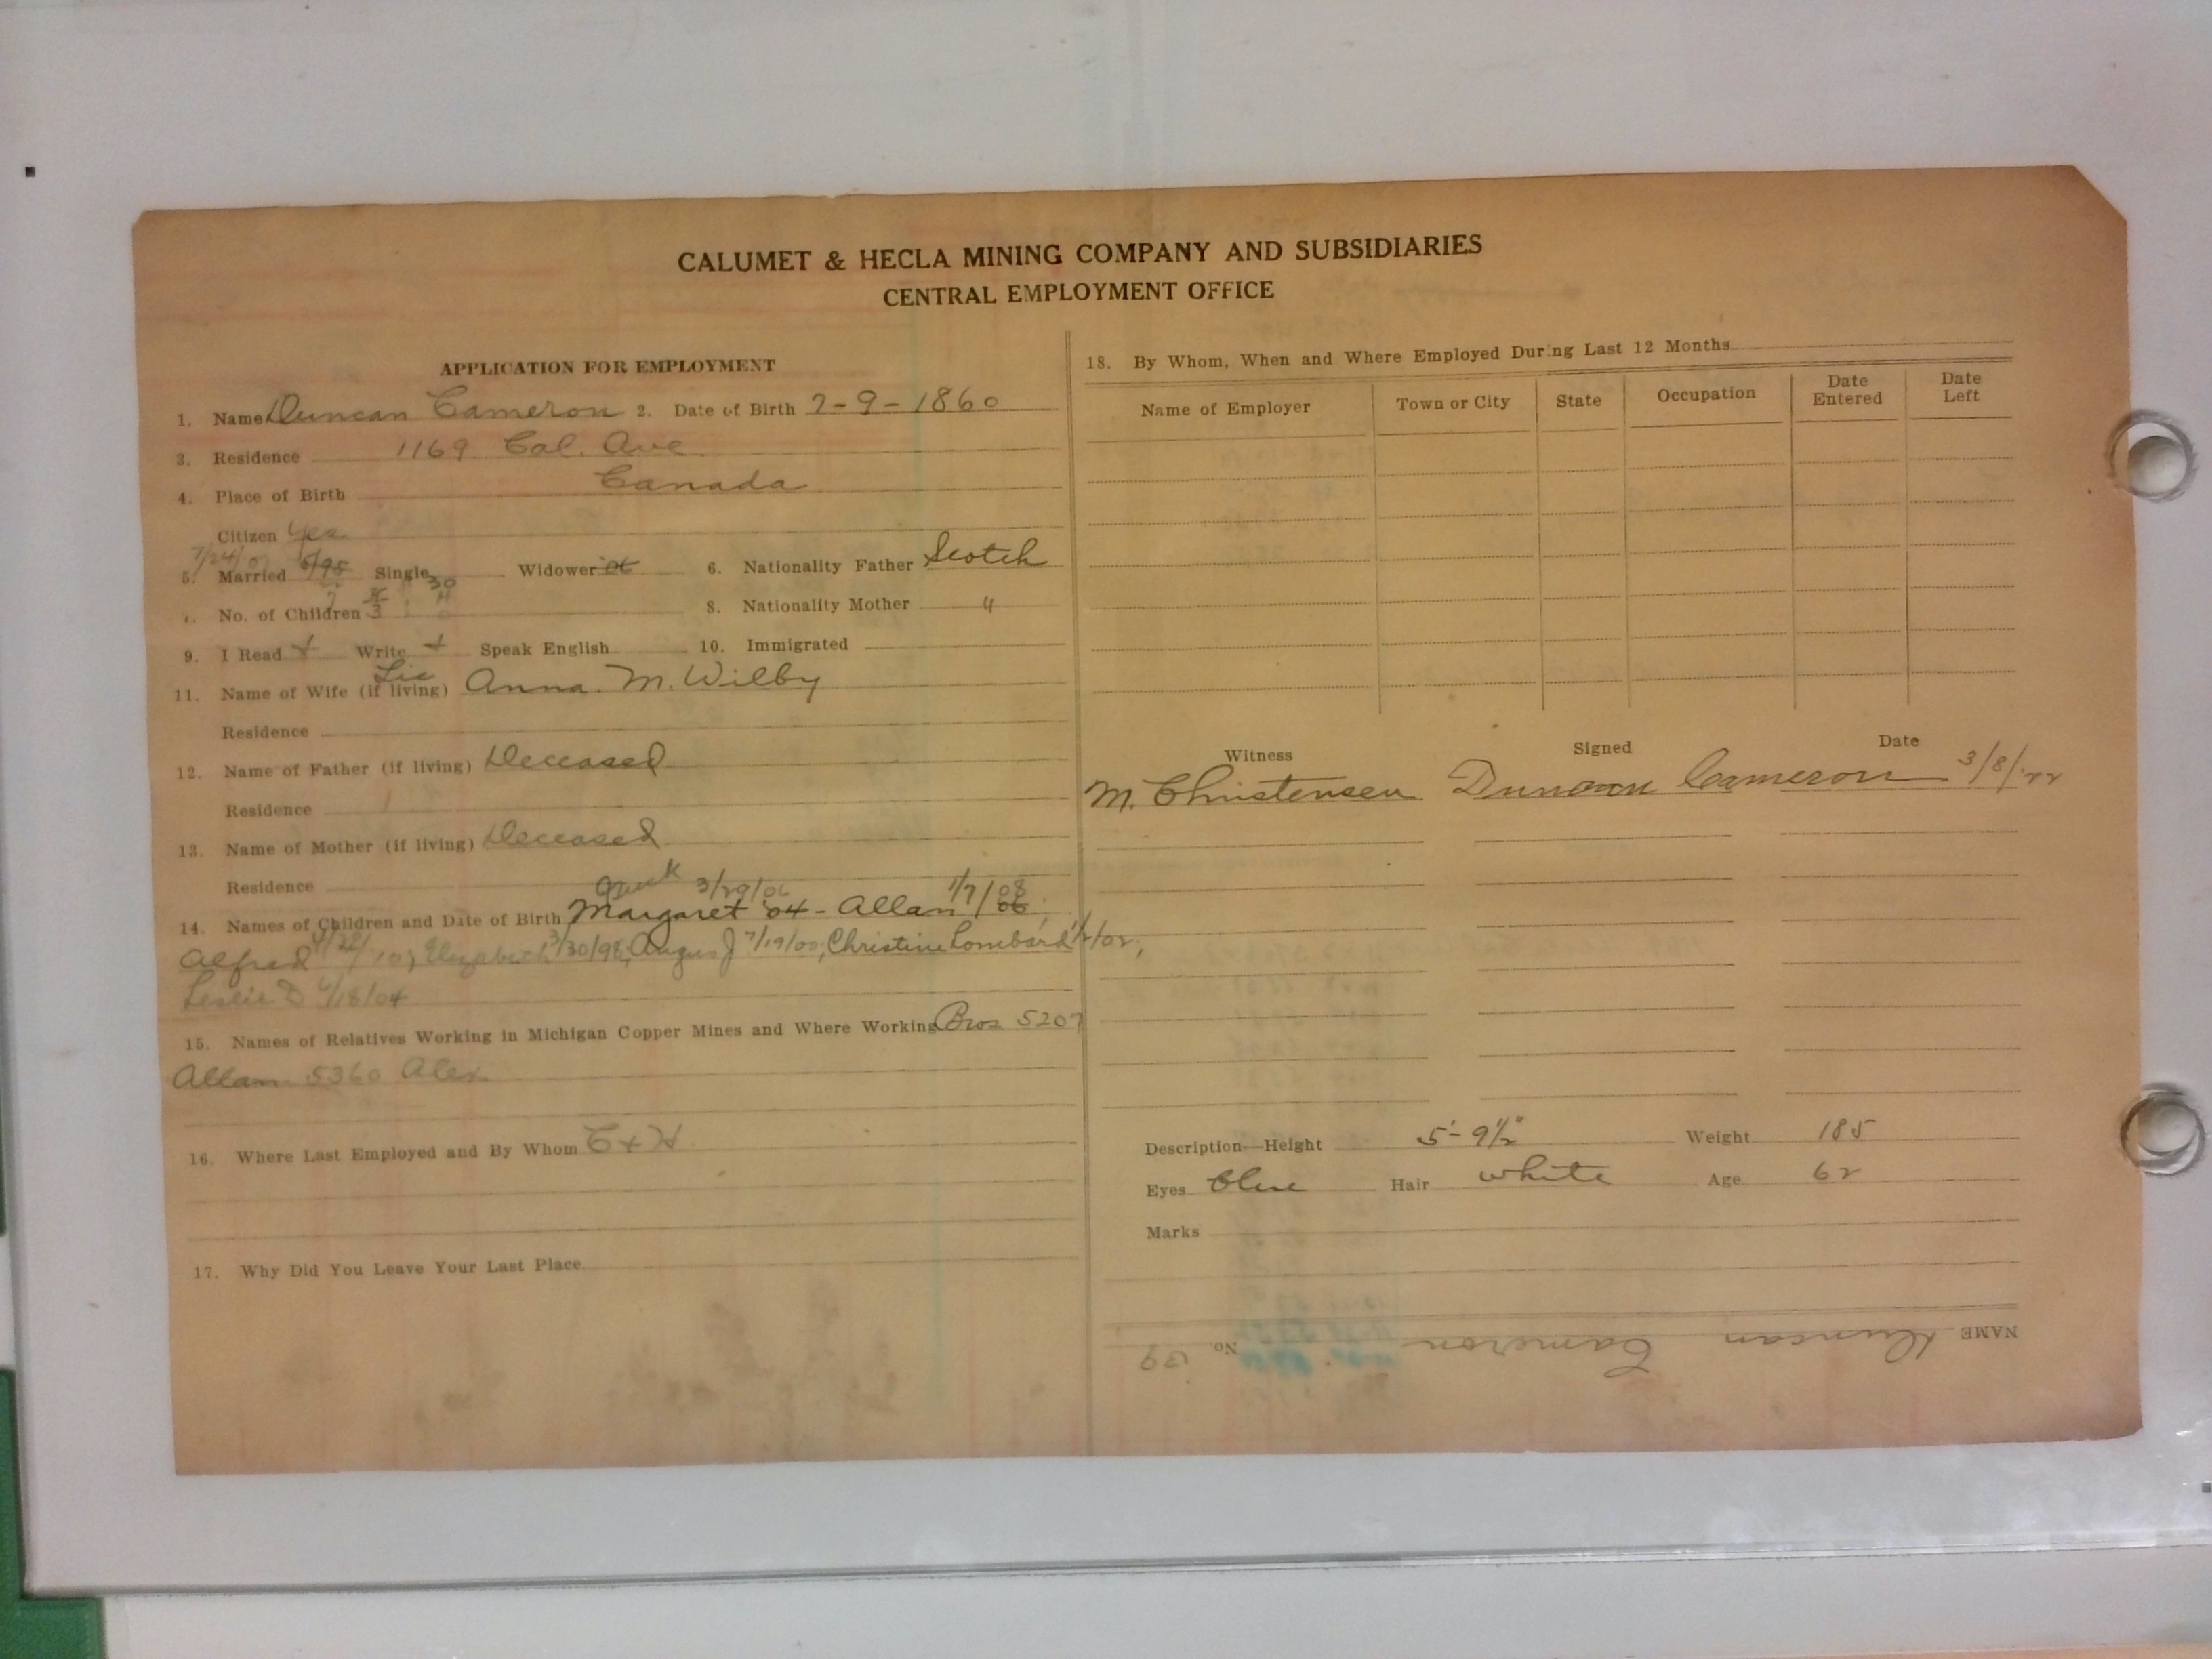 CALUMET & HECLA MINING COMPANY AND SUBSIDIARIES
CENTRAL EMPLOYMENT OFFICE
APPLICATION FOR EMPLOYMENT
1. Name Duncan Cameron 2. Date of Birth 7-9-1860
3. Residence 1169 Cal. Ave
4. Place of Birth Canada
Citizen Yes
5. Married 6/95 Single Widower 6. Nationality Father Scotch
7. No. of Children 3 8. Nationality Mother "
9. I Read + Write + Speak English 10. Immigrated
11. Name of Wife (if living) Anna M. Wilby
Residence
12. Name of Father (if living) Deceased
Residence
13. Name of Mother (if living) Deceased
Residence
3/29/06 1/7/08
14. Names of Children and Date of Birth Margaret '04 - Allan 06
Alfred Elizabeth 3/30/98, Angus J 7/19/00, Christine Lombard 1/2/02,
Leslie D 4/18/04
15. Names of Relatives Working in Michigan Copper Mines and Where Working Bros. 5207
Allan 5360 Alex
16. Where Last Employed and By Whom C + H
17. Why Did You Leave Your Last Place
18. By Whom, When and Where Employed During Last 12 Months
Name of Employer Town or City State Occupation Date Entered Date Left
Witness Signed Date
M. Christensen Duncan Cameron 3/8/22
Description—Height 5'-9½" Weight 185
Eyes Blue Hair white Age 62
Marks
NAME Duncan Cameron No. 39